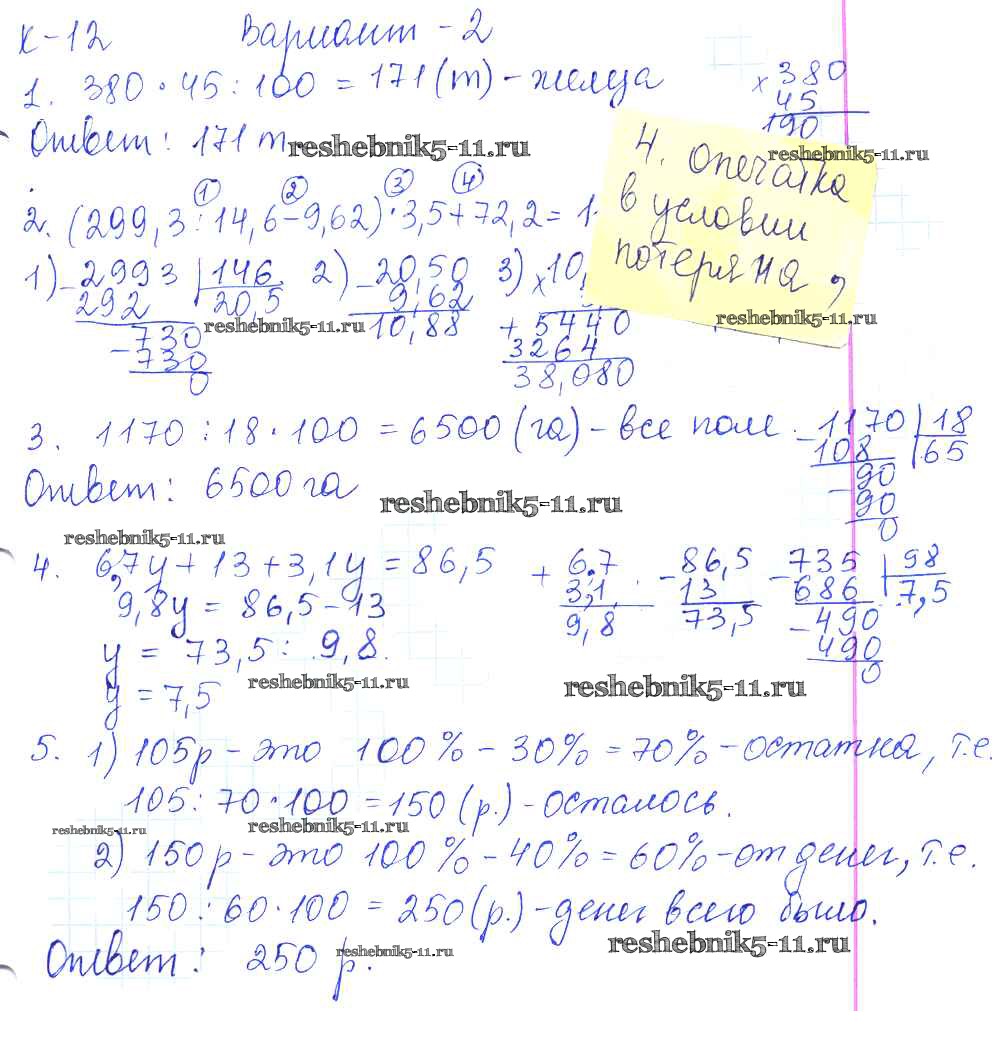 К-12 Вариант - 2
1. 380 · 45 : 100 = 171 (т) - железа
× 380
45
190
Ответ: 171 т
reshebnik5-11.ru
reshebnik5-11.ru
4. Опечатка
в условии
потеряна ,
reshebnik5-11.ru
① ② ③ ④
2. (299,3 : 14,6 - 9,62) · 3,5 + 72,2 = 1
1) - 2993 | 146
292 20,5
730
- 730
0
2) - 20,50
9,62
10,88
3) × 10,
+ 5440
3264
38,080
reshebnik5-11.ru
3. 1170 : 18 · 100 = 6500 (га) - все поле.
- 1170 | 18
108 65
- 90
90
0
Ответ: 6500 га
reshebnik5-11.ru
reshebnik5-11.ru
4. 6,7y + 13 + 3,1y = 86,5
9,8y = 86,5 - 13
y = 73,5 : 9,8
y = 7,5
+ 6,7
3,1
9,8
- 86,5
13
73,5
- 735 | 98
686 7,5
- 490
490
0
reshebnik5-11.ru
reshebnik5-11.ru
5. 1) 105р - это 100% - 30% = 70% - остатка, т.е.
105 : 70 · 100 = 150 (р.) - осталось.
reshebnik5-11.ru
reshebnik5-11.ru
2) 150р - это 100% - 40% = 60% - от денег, т.е.
150 : 60 · 100 = 250 (р.) - денег всего было.
Ответ: 250 р.
reshebnik5-11.ru
reshebnik5-11.ru